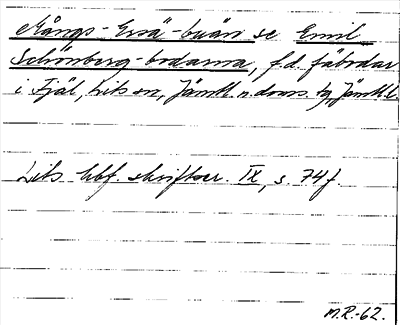 Mångs-Ersä-buän se Emil
Schönberg-bodarna, f.d. fäbodar
i Fjäl, Lits sn, Jämtl. n. doms. tg, Jämtl. l.
Lits hbf. skriftser. IX, s. 74 f.
M.R.-62.